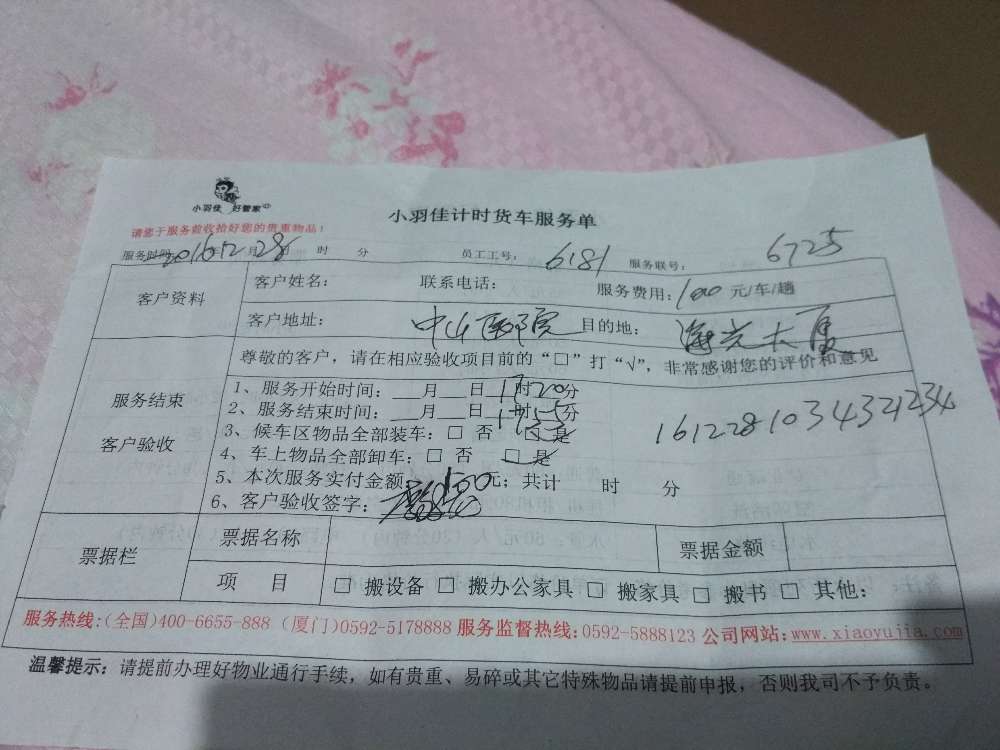 小羽佳 好管家
小羽佳计时货车服务单
请您于服务前收拾好您的贵重物品!
服务时间: 2016年12月28日 时 分 员工工号: 6181 服务联号: 6725
客户资料
客户姓名: 联系电话: 服务费用: 100 元/车/趟
客户地址: 中山医院 目的地: 海光大厦
尊敬的客户,请在相应验收项目前的“□”打“√”,非常感谢您的评价和意见
服务结束
客户验收
1、服务开始时间: __月__日17时20分
2、服务结束时间: __月__日17时55分
3、候车区物品全部装车:□ 否 □ 是
4、车上物品全部卸车:□ 否 □ 是
5、本次服务实付金额 100 元; 共计 时 分
6、客户验收签字:
1612281034321234
票据栏
票据名称 票据金额
项 目 □ 搬设备 □ 搬办公家具 □ 搬家具 □ 搬书 □ 其他:
服务热线:(全国)400-6655-888 (厦门)0592-5178888 服务监督热线:0592-5888123 公司网站:www.xiaoyujia.com
温馨提示: 请提前办理好物业通行手续,如有贵重、易碎或其它特殊物品请提前申报,否则我司不予负责。